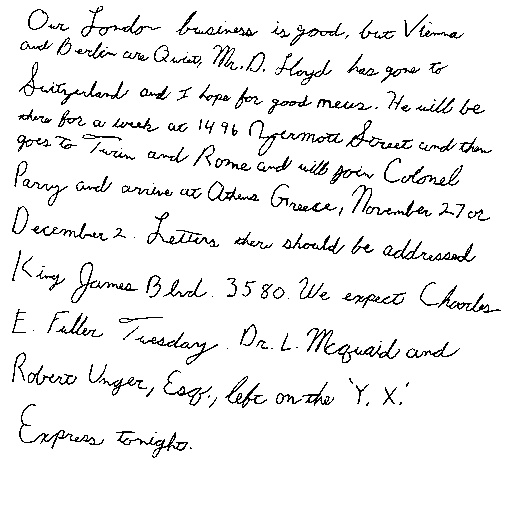 Our London business is good, but Vienna
and Berlin are Quiet, Mr. D. Lloyd has gone to
Switzerland and I hope for good news. He will be
there for a week at 1496 Zermott Street and then
goes to Turin and Rome and will join Colonel
Parry and arrive at Athens Greece, November 27 or
December 2. Letters there should be addressed
King James Blvd. 3580. We expect Charles
E. Fuller Tuesday. Dr. L. Mcquaid and
Robert Unger, Esq., left on the 'Y. X.'
Express tonight.